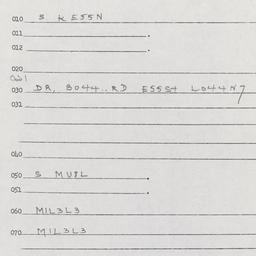 010 S KE55N
011 .
012 .
020
030 DR, 8044..RD E55S+ L044N7
031
040
050 S MU8L
051 .
060 MIL3L3
070 MIL3L3